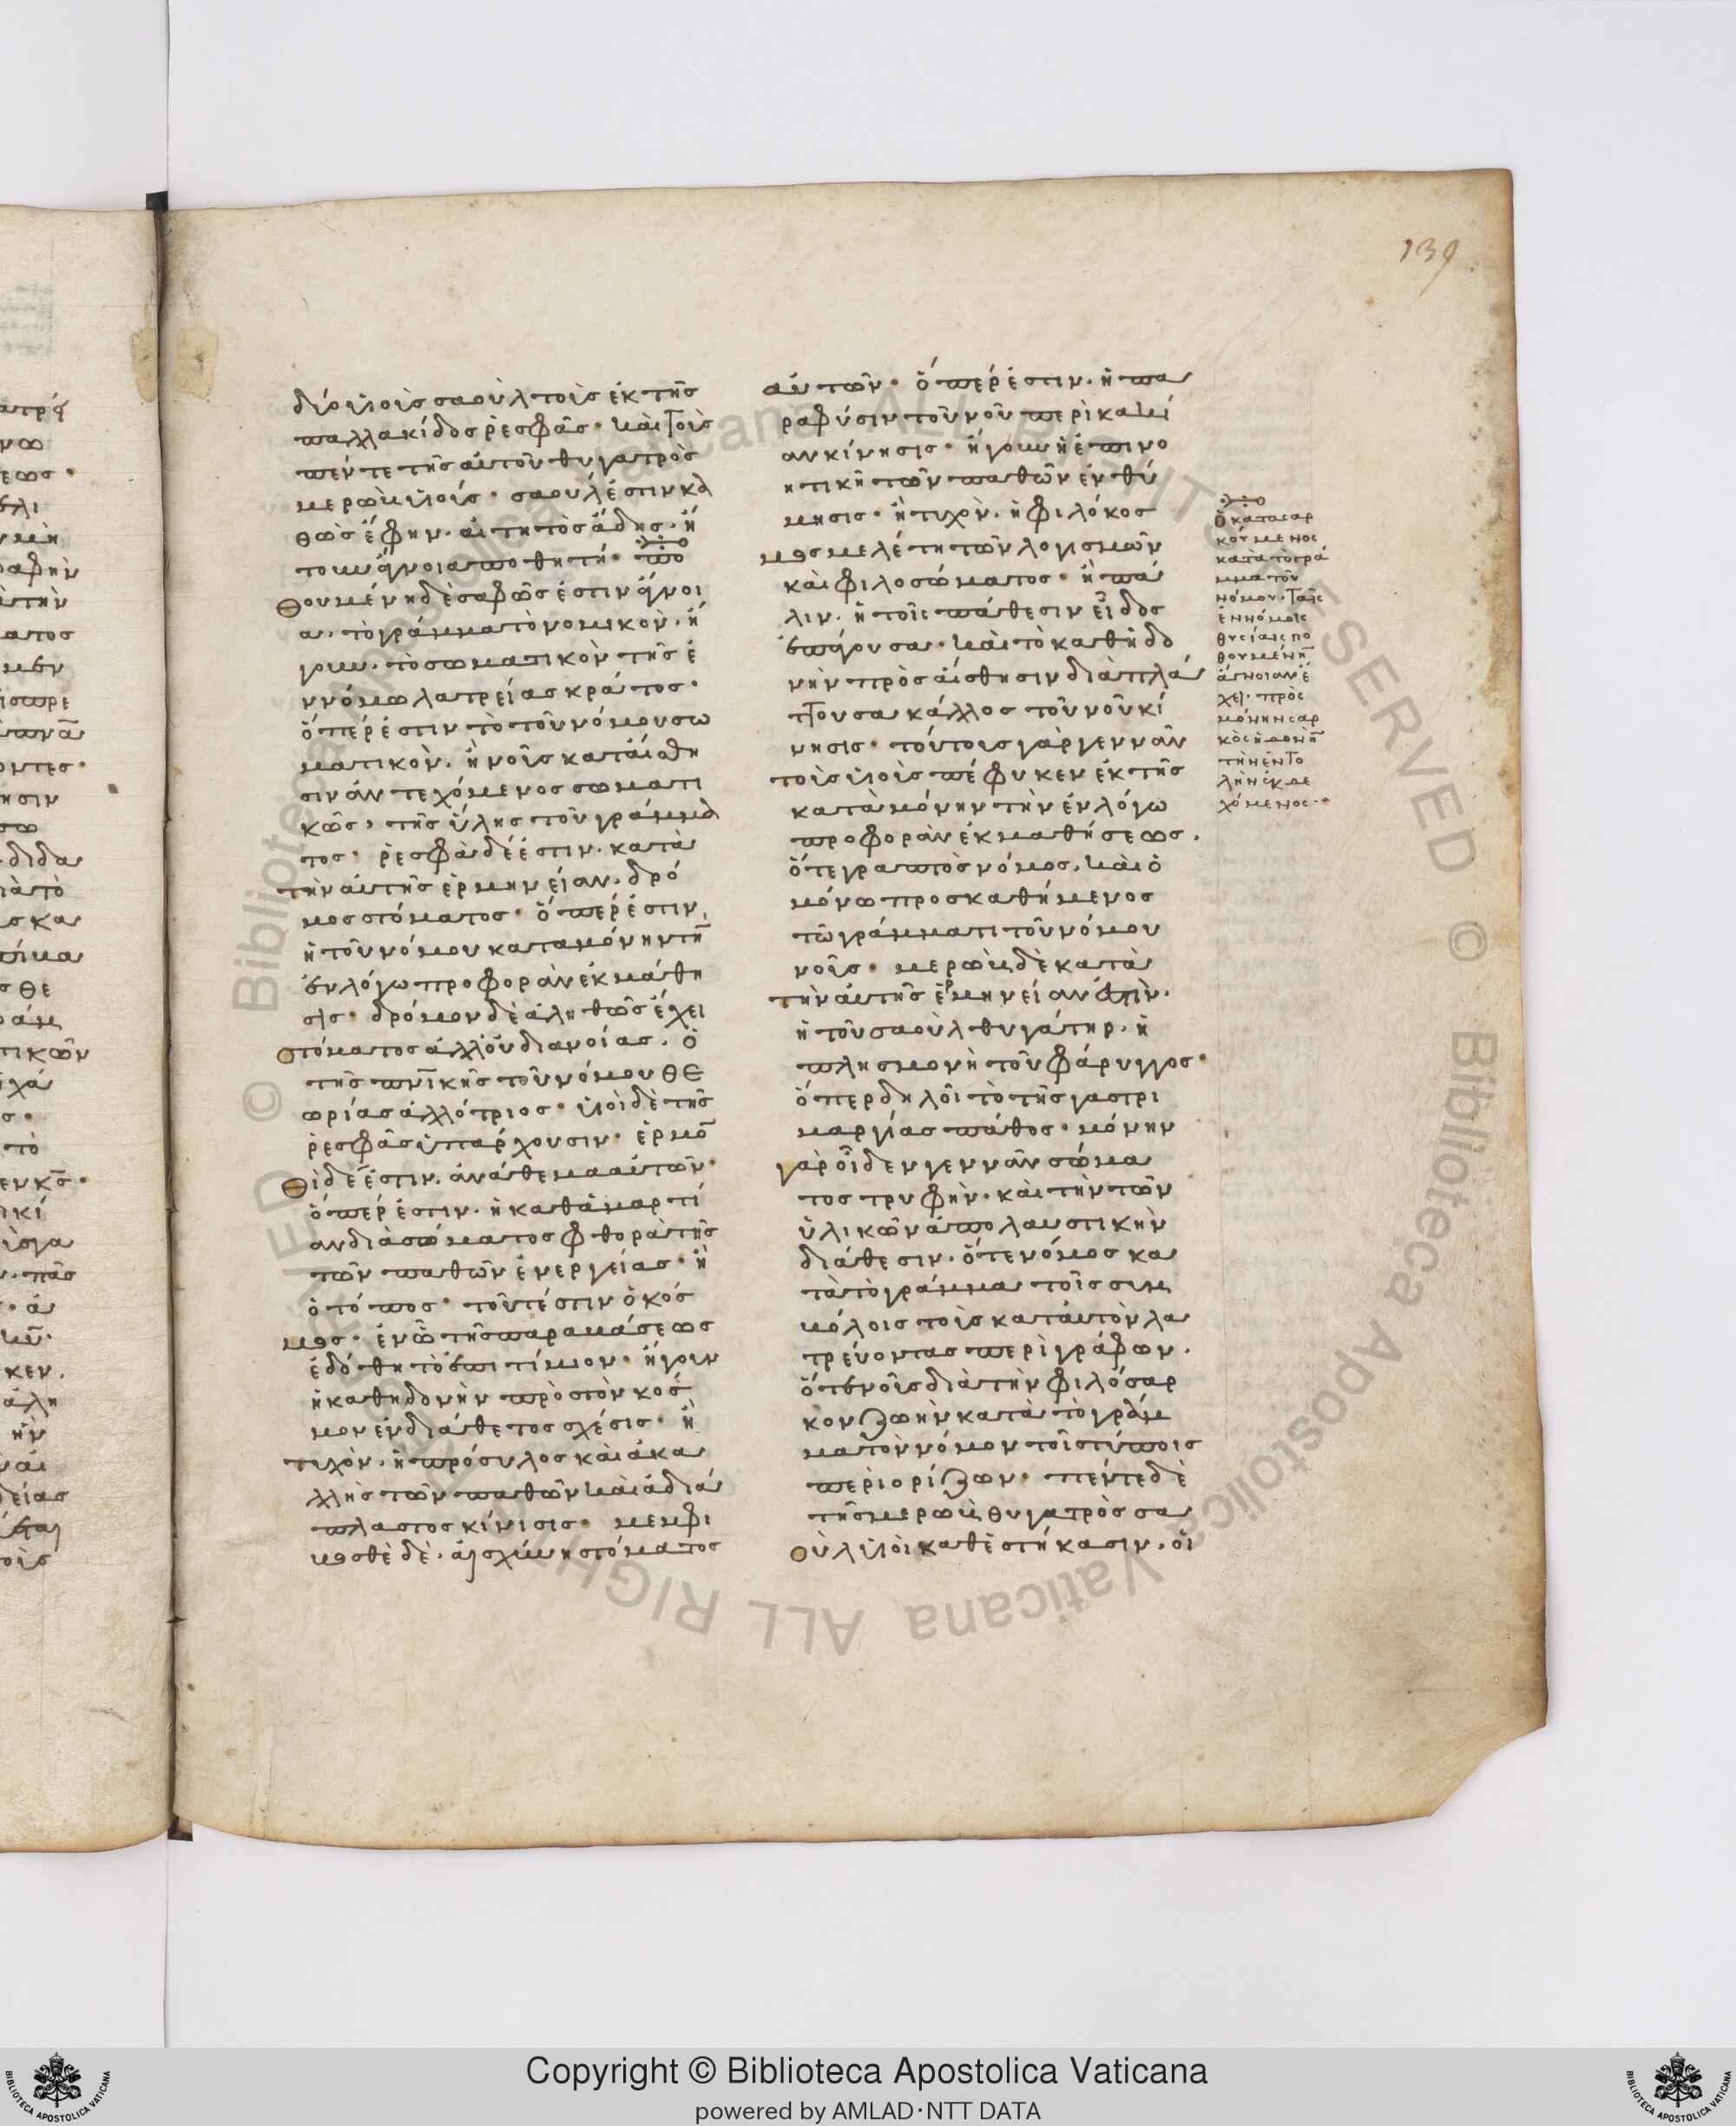 139
δύο ϋἱοὶς σαοὺλ τοὶς ἐκ τῆς
παλλακίδος ῥεσφᾶς· καὶ τοὶς
πέντε τῆς αὐτοῦ θυγατρὸς
μερὼβ ϋἱοίς· σαοὺλ ἐστιν κα
θὼς ἔφην. αἰτητὸς ἅδης. ἢ
τουν ἄγνοια ποθητή· πο
θουμένη δὲ σαφῶς ἐστιν ἄγνοι
α. τὸ γράμμα τὸ νομικὸν. ἤ
γουν. τὸ σωματικὸν τῆς ἐ
ννόμω λατρείας κράτος·
ὅπέρ ἐστιν τὸ τοῦ νόμου σω
ματικὸν. ἢ νοῦς κατ' αἴσθη
σιν ἀντεχόμενος σωματι
κῶς, τῆς ὕλης τοῦ γράμμα
τος· ῥεσφὰ δέ ἐστιν. κατὰ
τὴν αὐτῆς ἑρμηνείαν. δρό
μος στόματος· ὅπέρ ἐστιν,
ἡ τοῦ νόμου κατα μόνην τὴν
ἐν λόγω προφορὰν ἐκμάθη
σις· δρόμον δὲ ἀληθῶς ἔχει
στόματος ἀλλ' οὐ διανοίας. ὁ
τῆς πνικῆς τοῦ νόμου θε
ωρίας ἀλλότριος· ϋἱοὶ δὲ τῆς
ῥεσφᾶς ὑπάρχουσιν· ἑρμῶ
θὶ δέ ἐστιν. ἀνάθεμα αὐτῶν·
ὅπέρ ἐστιν. ἡ καθ' ἁμαρτί
αν διὰ σώματος φθορὰ τῆς
τῶν παθῶν ἐνεργείας· ἢ
ὁ τόπος· τοῦτέστιν ὁ κόσ
μος· ἐν ᾧ τῆς παραβάσεως
ἐδόθη τὸ ἐπιτίμιον· ἤγουν
ἡ καθηδονὴν πρὸς τὸν κόσ
μον ἐνδιάθετος σχέσις· ἢ
τυχὸν. ἡ πρόσυλος καὶ ἀκα
λλὴς τῶν παθῶν καὶ ἀδιά
πλαστος κίνισις· μεμφι
βοσθὲ δὲ. αἰσχύνη στόματος
αὐτῶν· ὅπέρ ἐστιν. ἡ πα
ραφύσιν τοῦ νοῦ περὶ κακί
αν κίνησις· ἤγουν ἡ ἐπινο
ητικὴ τῶν παθῶν ἐνθύ
μησις· ἢ τυχὸν. ἡ φιλόκοσ
μος μελέτη τῶν λογισμῶν
καὶ φιλοσώματος· ἢ πά
λιν. ἡ τοῖς πάθεσιν εἶδος
ἐπάγουσα· καὶ τὸ καθἡδο
νὴν πρὸς αἴσθησιν διαπλά
ττουσα κάλλος τοῦ νοῦ κί
νησις· τούτους γὰρ γεννᾶν
τοὶς ϋἱοὶς πέφυκεν ἐκ τῆς
κατὰ μόνην τὴν ἐν λόγω
προφορὰν ἐκμαθήσεως.
ὅ τε γραπτὸς νόμος. καὶ ὁ
μόνω προσκαθήμενος
τῶ γράμματι τοῦ νόμου
νοῦς· μερὼβ δὲ κατὰ
τὴν αὐτῆς ἑρμηνείαν ἐστὶν.
ἡ τοῦ σαοὺλ θυγάτηρ. ἡ
πλησμονὴ τοῦ φάρυγγος·
ὅπερ δηλοῖ τὸ τῆς γαστρι
μαργίας πάθος· μόνην
γὰρ οἶδεν γεννᾶν σώμα
τος τρυφὴν. καὶ τὴν τῶν
ὑλικῶν ἀπολαυστικὴν
διάθεσιν. ὅ τε νόμος κα
τὰ τὸ γράμμα τοῖς συμ
βόλοις τοὺς κατ' αὐτὸν λα
τρεύοντας περιγράφων.
ὅ τε νοῦς διὰ τὴν φιλόσαρ
κον ζωὴν κατὰ τὸ γράμ
μα τὸν νόμον τοῖς τύποις
περιορίζων· πέντε δὲ
τῆς μερὼβ θυγατρὸς σα
οὺλ ϋἱοὶ καθεστήκασιν. οἱ
ὁ κατασαρ
κούμενος
κατὰ τὸ γρά
μμα τοῦ
νόμου. ταῖς
ἐννόμοις
θυσίαις πο
θουμένην
ἄγνοιαν ἔ
χει· πρὸς
μόνην σαρ
κὸς ἡδονὴν
τὴν ἐντο
λὴν ἐκδε
χόμενος·
Copyright © Biblioteca Apostolica Vaticana
powered by AMLAD·NTT DATA